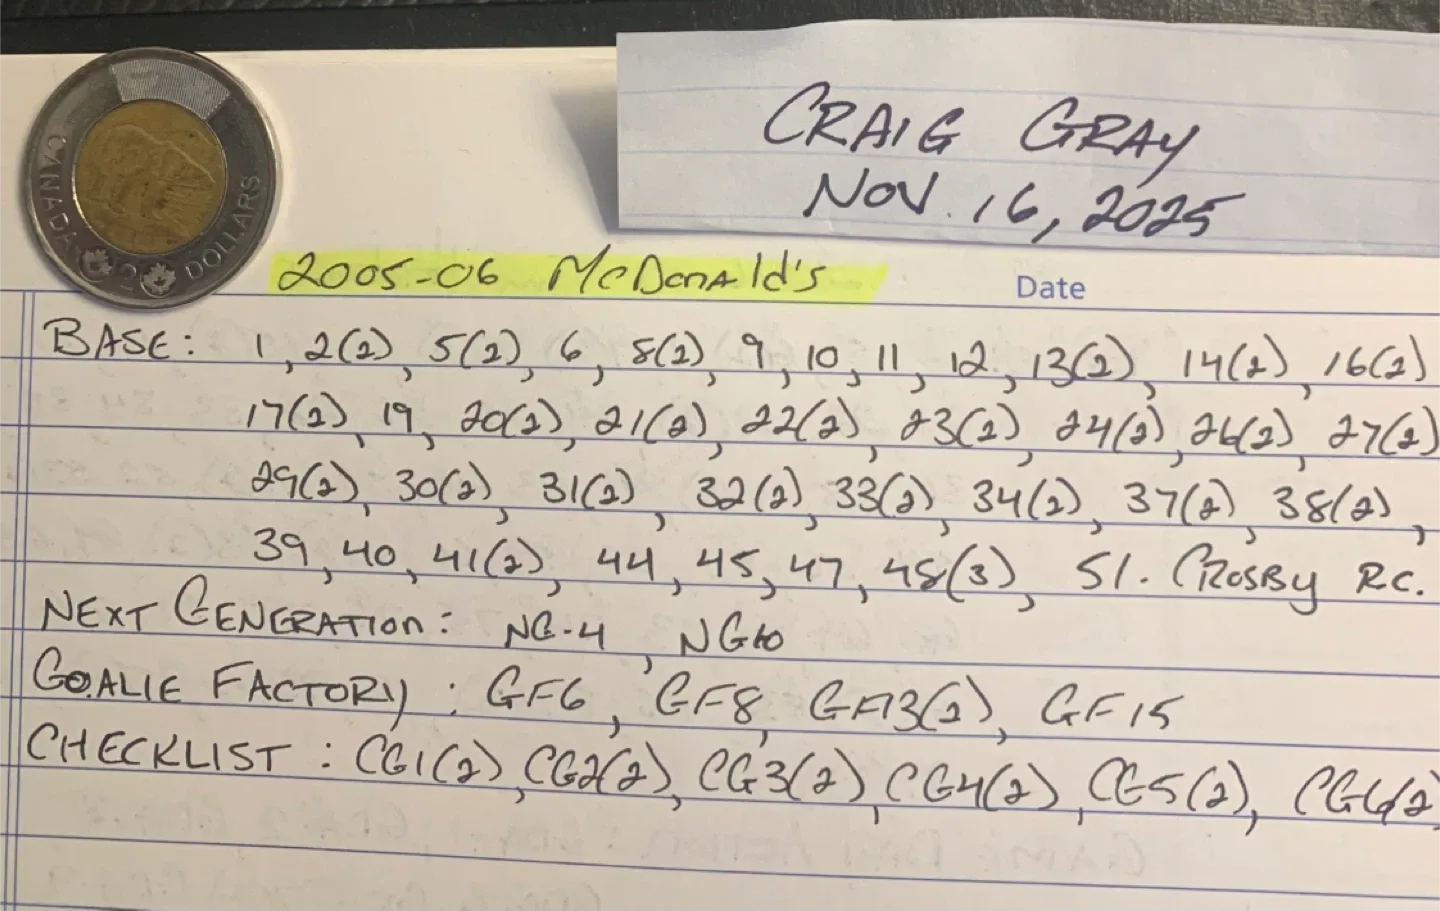 CANADA 2 DOLLARS
CRAIG GRAY
NOV. 16, 2025
2005-06 McDonald's
Date
BASE: 1, 2(2), 5(2), 6, 8(2), 9, 10, 11, 12, 13(2), 14(2), 16(2)
17(2), 19, 20(2), 21(2), 22(2), 23(2), 24(2), 26(2), 27(2)
29(2), 30(2), 31(2), 32(2), 33(2), 34(2), 37(2), 38(2),
39, 40, 41(2), 44, 45, 47, 48(3), 51. CROSBY RC.
NEXT GENERATION: NG-4, NG10
GOALIE FACTORY: GF6, GF8, GF13(2), GF15
CHECKLIST: CG1(2), CG2(2), CG3(2), CG4(2), CG5(2), CG6(2